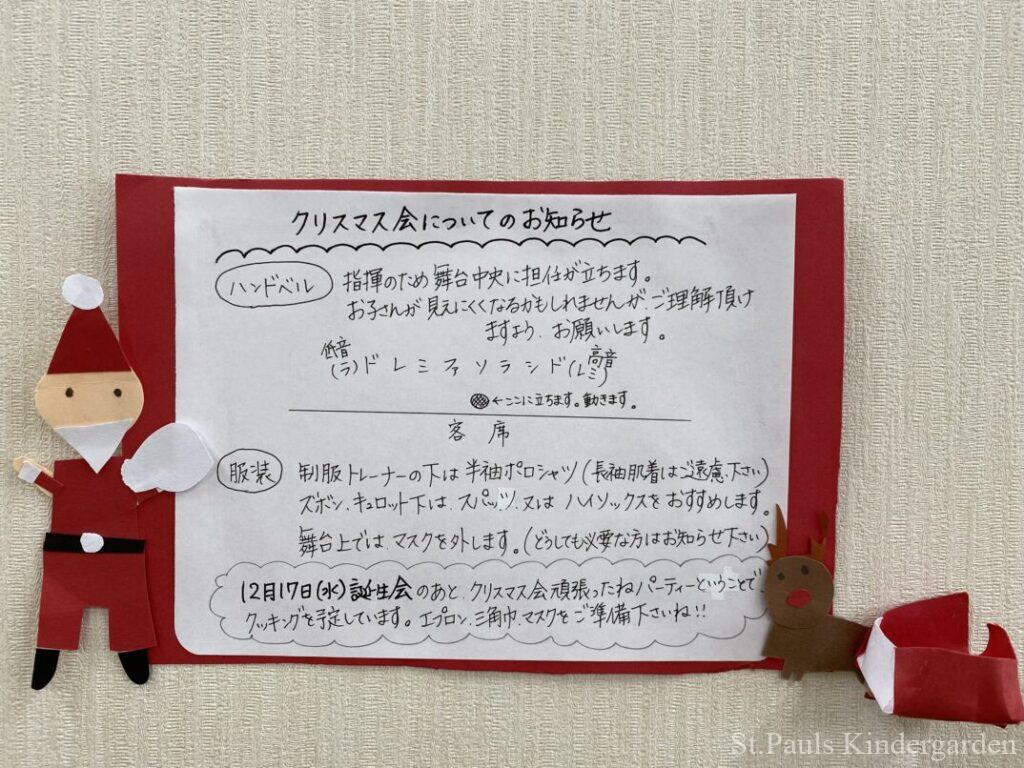 クリスマス会についてのお知らせ
ハンドベル 指揮のため舞台中央に担任が立ちます。
お子さんが見えにくくなるかもしれませんが、ご理解頂け
ますよう、お願いします。
低音 高音
(ラ)ド レ ミ ファ ソ ラ シ ド(レミ)
←ここに立ちます。動きます。
客席
服装 制服トレーナーの下は半袖ポロシャツ(長袖肌着はご遠慮下さい)
ズボン、キュロット下は、スパッツ、又は ハイソックスをおすすめします。
舞台上では、マスクを外します。(どうしても必要な方はお知らせ下さい)
12月17日(水)誕生会のあと、クリスマス会頑張ったねパーティーということで、
クッキングを予定しています。エプロン、三角巾、マスクをご準備下さいね!!
St.Pauls Kindergarden